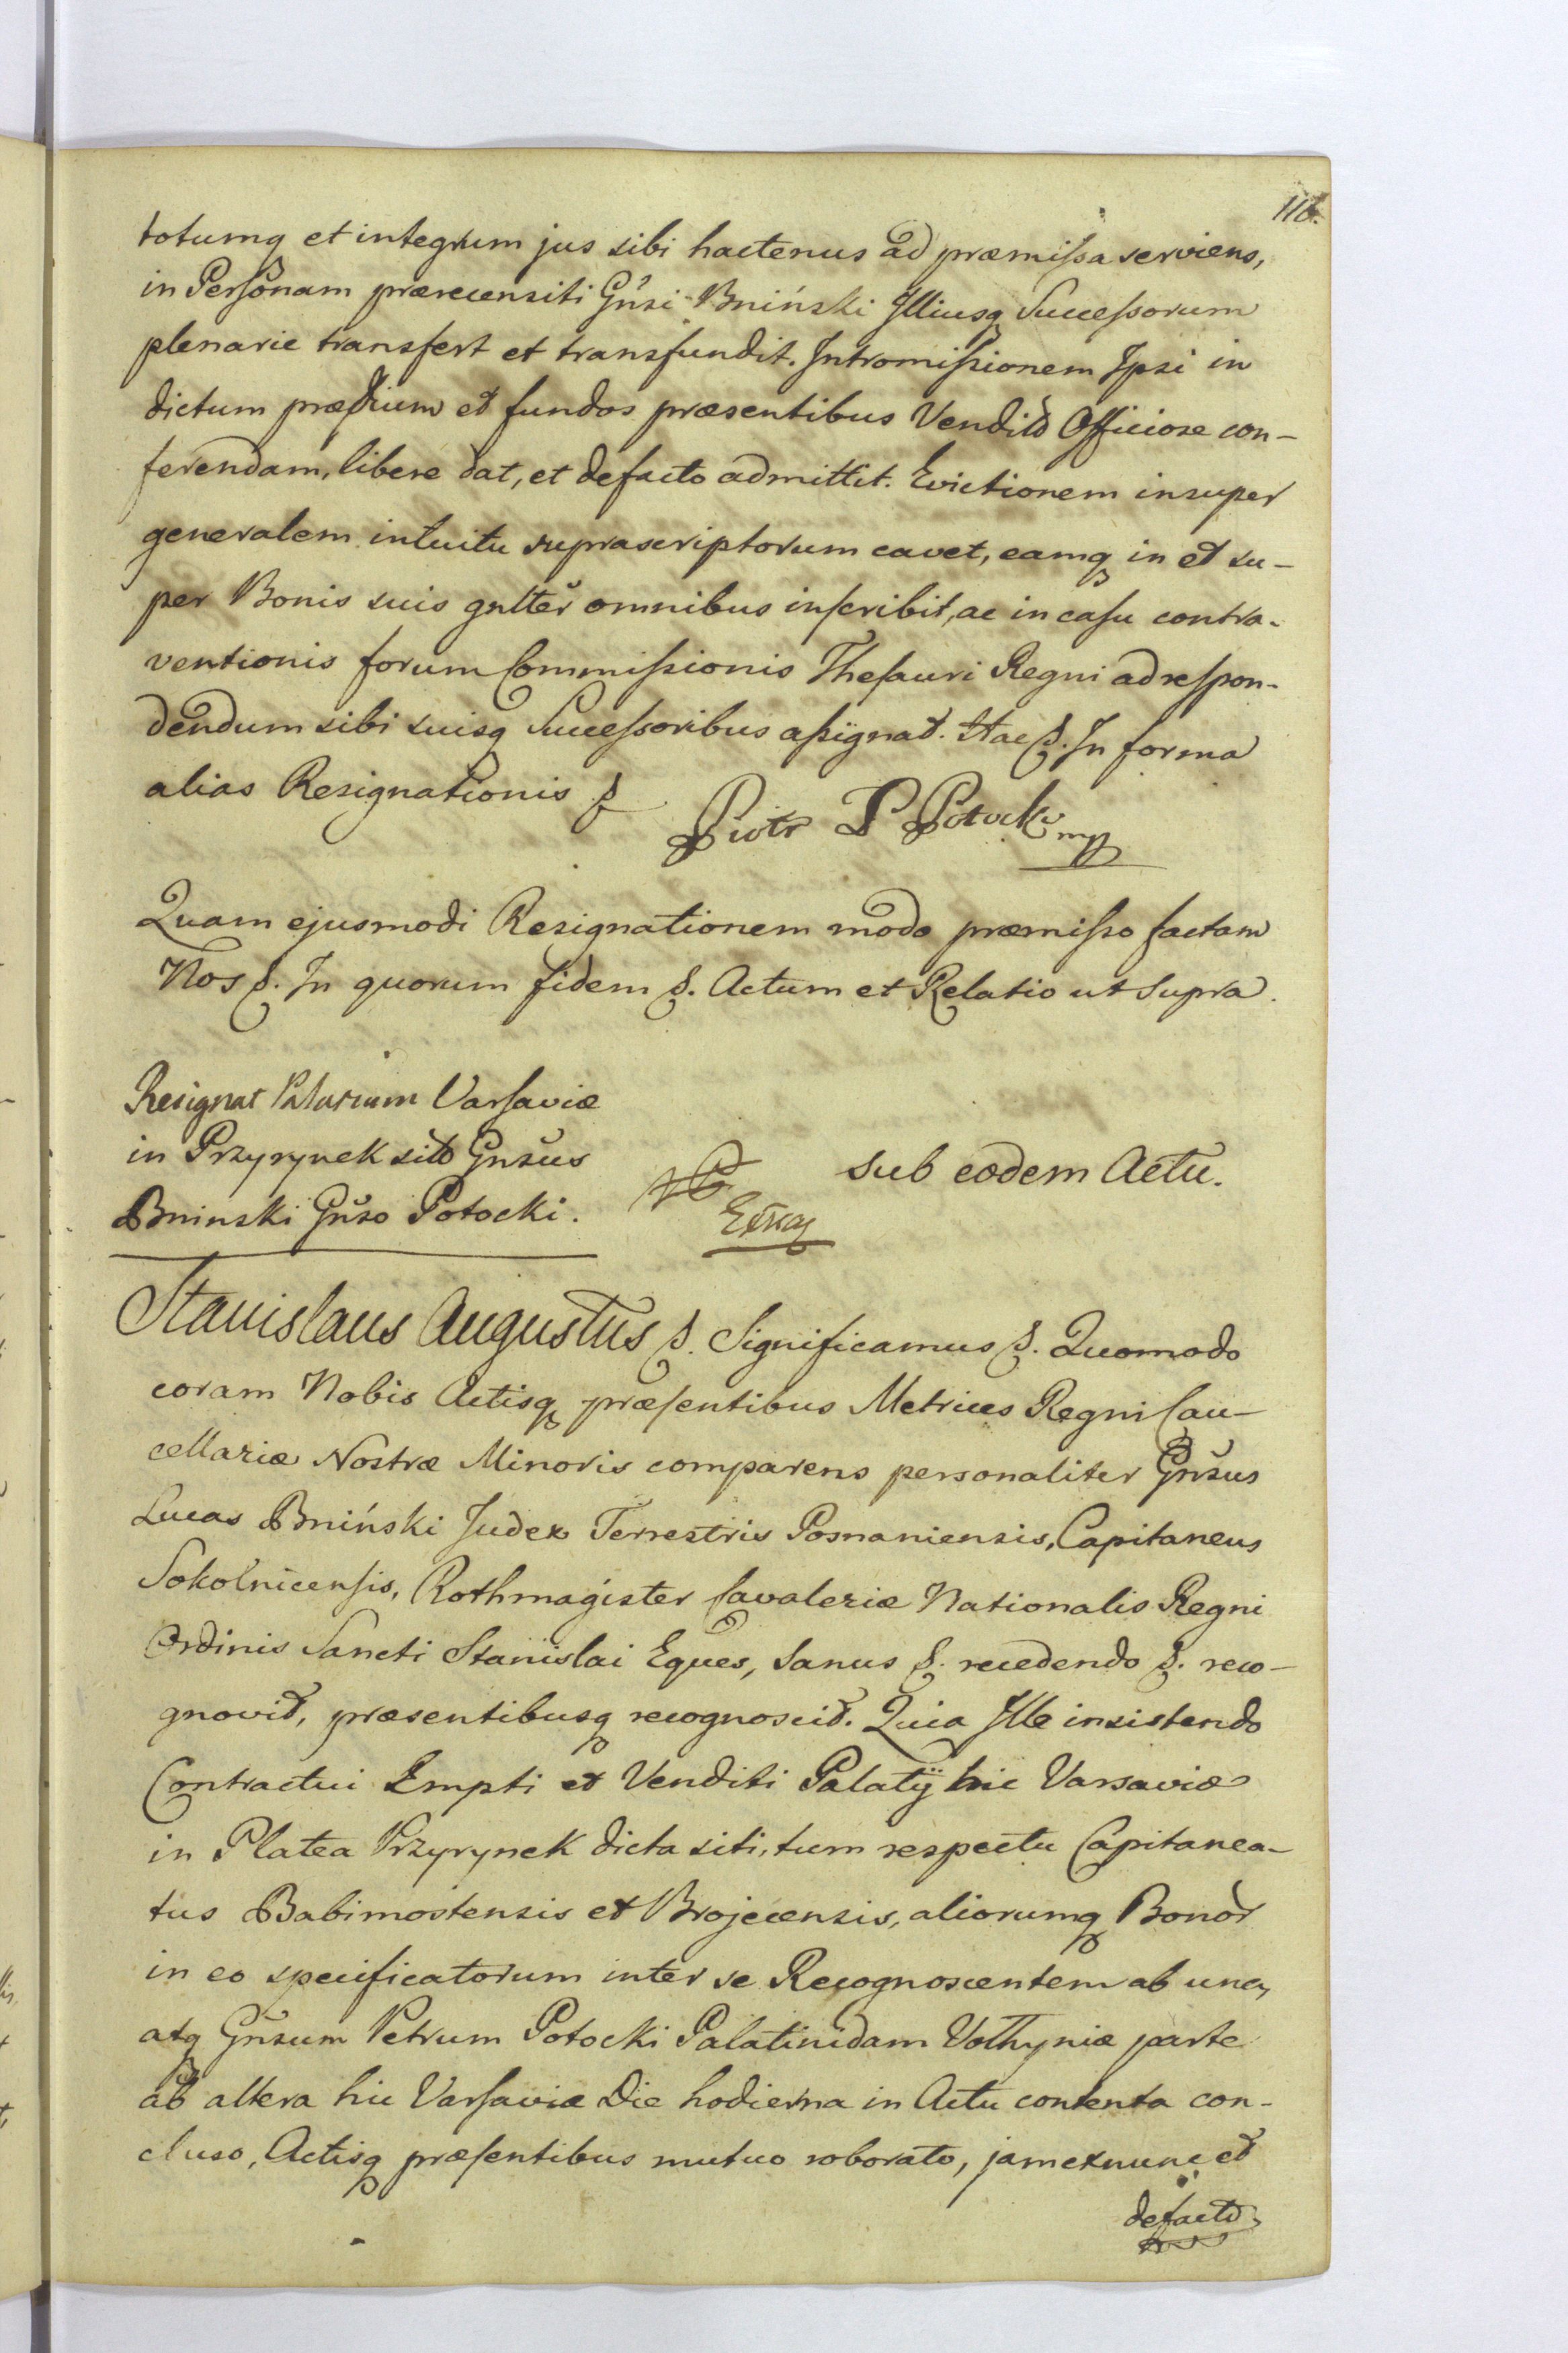 116.
totumq et integrum jus sibi hactenus ad præmissa serviens,
in Personam prærecensiti Gnsi Bniński Illiusq Successorum
plenarie transfert et transfundit. Intromissionem Ipsi in
dictum prædium et fundos præsentibus Vendit Officiose con-
ferendam, libere dat, et defacto admittit. Evictionem insuper
generalem intuitu suprascriptorum cavet, eamq in et su-
per Bonis suis gnltter omnibus inscribit, ac in casu contra-
ventionis forum Commissionis Thesauri Regni ad respon-
dendum sibi suisq Successoribus assignat. Hac &. In forma
alias Resignationis &
Piotr P Potocki mp
Quam ejusmodi Resignationem modo præmisso factam
Nos &. In quorum fidem &. Actum et Relatio ut supra.
Resignat Palatium Varsaviæ
in Przyrynek sito Gnsus
Bninski Gnso Potocki.
sub eodem Actu.
Stanislaus Augustus &. Significamus &. Quomodo
coram Nobis Actisq præsentibus Metrices Regni Can-
cellariæ Nostræ Minoris comparens personaliter Gnsus
Lucas Bniński Judex Terrestris Posnaniensis, Capitaneus
Sokolnicensis, Rothmagister Cavaleriæ Nationalis Regni
Ordinis Sancti Stanislai Eques, sanus &. recedendo &. reco-
gnovit, præsentibusq recognoscit. Quia Ille insistendo
Contractui Empti et Venditi Palatij hic Varsaviæ
in Platea Przyrynek dicta siti, tum respectu Capitanea-
tus Babimostensis et Brojecensis, aliorumq Bonor
in eo specificatorum inter se Recognoscentem ab una,
atq Gnsum Petrum Potocki Palatinidam Volhyniæ parte
ab altera hic Varsaviæ Die hodierna in Actu contenta con-
cluso, Actisq præsentibus mutuo roborato, jam exnunc et
defacto